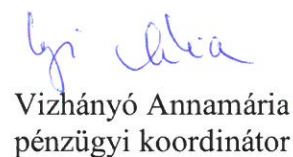 Vizhányó Annamária
pénzügyi koordinátor